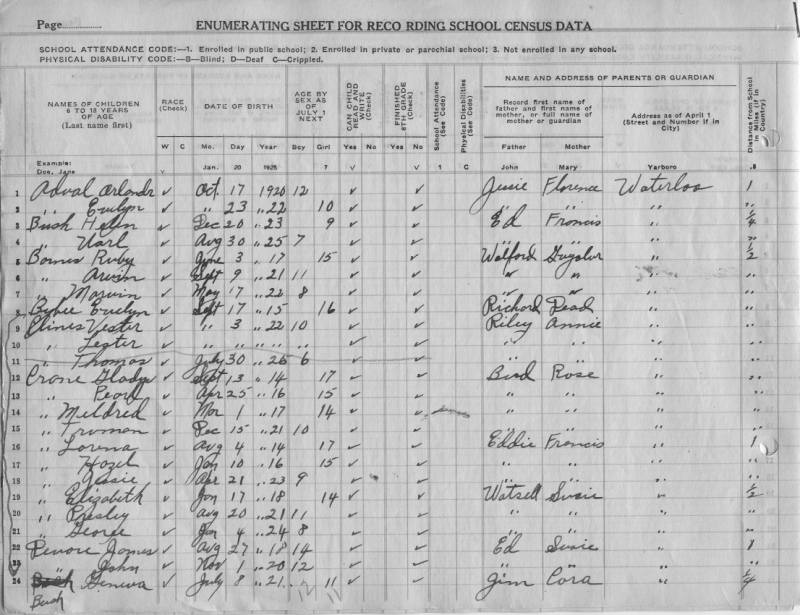 Page
ENUMERATING SHEET FOR RECO RDING SCHOOL CENSUS DATA
SCHOOL ATTENDANCE CODE:—1. Enrolled in public school; 2. Enrolled in private or parochial school; 3. Not enrolled in any school.
PHYSICAL DISABILITY CODE:—B—Blind; D—Deaf C—Crippled.
NAMES OF CHILDREN 6 TO 18 YEARS OF AGE (Last name first) RACE (Check) W C DATE OF BIRTH Mo. Day Year AGE BY SEX AS OF JULY 1 NEXT Boy Girl CAN CHILD READ AND WRITE (Check) Yes No FINISHED 8TH GRADE (Check) Yes No School Attendance (See Code) Physical Disabilities (See Code) NAME AND ADDRESS OF PARENTS OR GUARDIAN Record first name of father and first name of mother, or full name of mother or guardian Father Mother Address as of April 1 (Street and Number if in City) Distance from School in Miles (if in Country)
Example: Doe, Jane √ Jan. 20 1925 7 √ √ 1 C John Mary Yarboro .8
1 Adval Orlandr ✓ Oct. 17 1920 12 ✓ ✓ Jessie Florence Waterloo 1
2 " Evelyn ✓ " 23 " 22 10 ✓ ✓ " " " "
3 Bush Helen ✓ Dec 20 " 23 9 ✓ ✓ Ed Francis " 1/4
4 " Uarl ✓ Aug 30 " 25 7 ✓ ✓ " " " "
5 Ruby ✓ June 3 " 17 15 ✓ ✓ Walford " 1/2
6 " Arvin ✓ Sept 9 " 21 11 ✓ ✓ " " " "
7 " Marvin ✓ May 17 " 22 8 ✓ ✓ " " " "
8 Evelyn ✓ Sept 17 " 15 16 ✓ ✓ Richard Dead " "
9 Clines Vester ✓ " 3 " 22 10 ✓ ✓ Riley Annie " "
10 " Lester ✓ " " " " " ✓ ✓ " " " "
11 " Thomas ✓ July 30 " 26 6 ✓ ✓ " " " "
12 Crone Gladys ✓ Sept 13 " 14 17 ✓ ✓ Bird Rose " "
13 " Pearl ✓ Apr 25 " 16 15 ✓ ✓ " " " "
14 " Mildred ✓ Mar 1 " 17 14 ✓ ✓ " " " "
15 " Truman ✓ Dec 15 " 21 10 ✓ ✓ " " " "
16 " Lorena ✓ Aug 4 " 14 17 ✓ ✓ Eddie Francis " 1
17 " Hazel ✓ Jan 10 " 16 15 ✓ ✓ " " " "
18 " Jessie ✓ Apr 21 " 23 9 ✓ ✓ " "
19 " Elizabeth ✓ Jan 17 " 18 14 ✓ ✓ Watsell Susie " 1/2
20 " Presley ✓ Aug 20 " 21 11 ✓ ✓ " " " "
21 " George ✓ Jan 4 " 24 8 ✓ ✓ " " " "
22 James ✓ Aug 27 " 18 14 ✓ ✓ Ed Susie " 1
23 " John ✓ Nov 1 " 20 12 ✓ ✓ " " " "
24 Geneva ✓ July 8 " 21 11 ✓ ✓ Jim Cora " 1/4
Bush